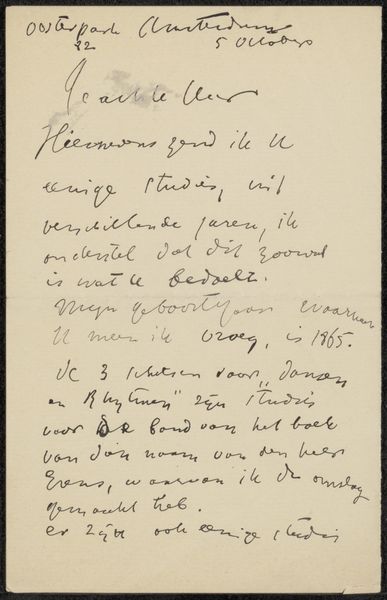 Oosterpark Amsterdam
82 5 October
Geachte Heer
Hiernevens zend ik U
eenige studies, uit
verschillende jaren, ik
onderstel dat dit zoowat
is wat U bedoelt.
Mijn geboortejaar waarnaar
U meen ik vroeg, is 1865.
De 3 schetsen voor „Dansen
en Rhytmen" zijn studies
voor de band van het boek
van dien naam van den heer
Erens, waarvan ik de omslag
gemaakt heb.
er zijn ook eenige studies